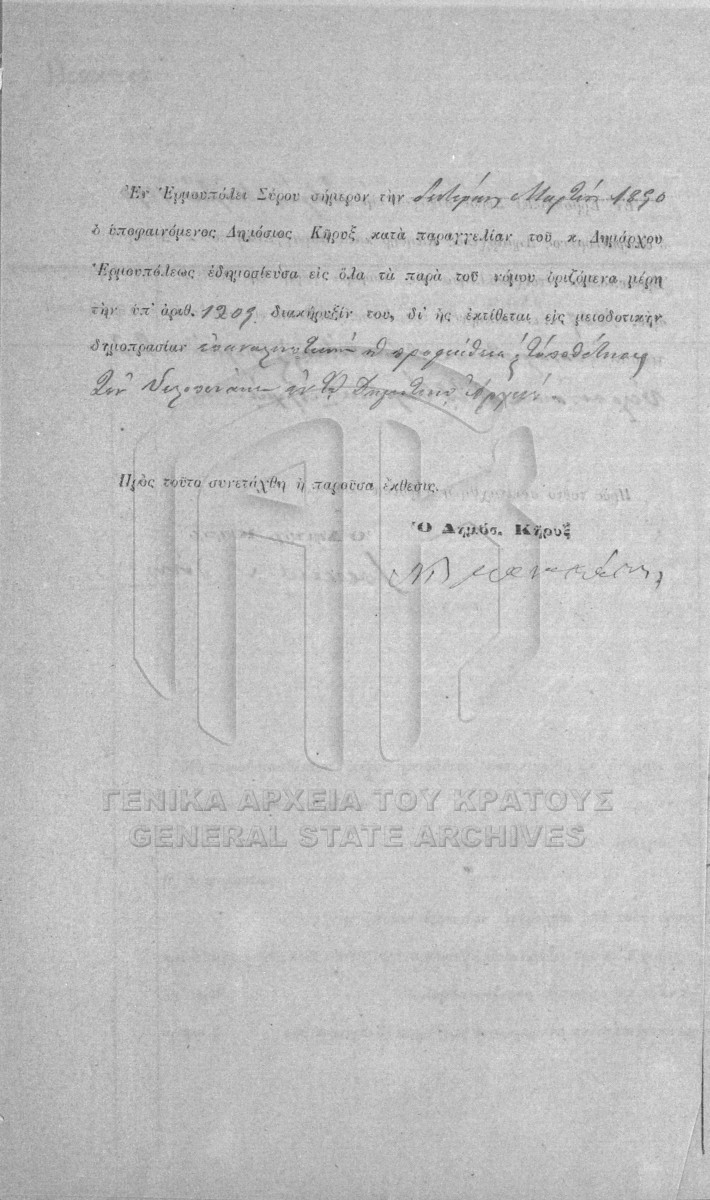 Ἐν Ἑρμουπόλει Σύρου σήμερον τὴν δευτέραν Μαρτίου 1890
ὁ ὑποφαινόμενος Δημόσιος Κῆρυξ κατὰ παραγγελίαν τοῦ κ. Δημάρχου
Ἑρμουπόλεως ἐδημοσίευσα εἰς ὅλα τὰ παρὰ τοῦ νόμου ὁριζόμενα μέρη
τὴν ὑπ' ἀριθ. 1209 διακήρυξίν του, δι' ἧς ἐκτίθεται εἰς μειοδοτικὴν
δημοπρασίαν ἐπαναληπτικὴν ἡ προμήθεια & τοποθέτησις
τῶν
Πρὸς τοῦτο συνετάχθη ἡ παροῦσα ἔκθεσις.
Ὁ Δημόσ. Κῆρυξ
ΓΕΝΙΚΑ ΑΡΧΕΙΑ ΤΟΥ ΚΡΑΤΟΥΣ
GENERAL STATE ARCHIVES